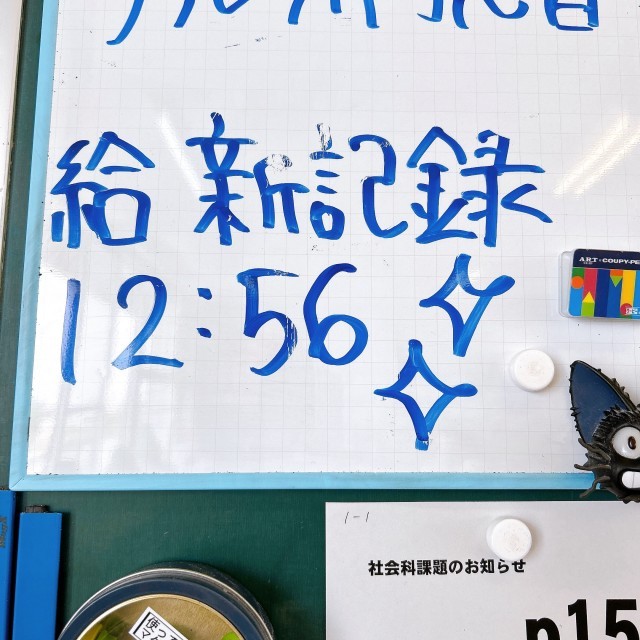 給 新記録
12:56
ART・COUPY-PE
1-1
社会科課題のお知らせ
p15